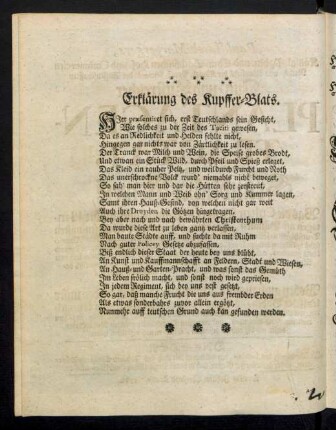 Erklärung des Kupffer-Blats.
Hier præsentiret sich, erst Teutschlands sein Gesicht,
Wie solches zu der Zeit des Tuein gewesen,
Da es an Redlichkeit und Helden fehlte nicht,
Hingegen gar nichts war von Zärtlichkeit zu lesen.
Der Tranck war Milch und Wein, die Speiß grobes Brodt,
Und etwan ein Stück Wild, durch Pfeil und Spieß erleget,
Das Kleid ein rauher Peltz, und weil durch Furcht und Noth
Das unerschrockne Volck wurd' niemahls nicht beweget,
So sah' man hier und dar die Hütten sehr zerstreut,
In welchen Mann und Weib ohn' Sorg und Kummer lagen,
Samt ihren Hauß-Gesind, von welchen nicht gar weit
Auch ihre Druyden die Götzen hingetragen.
Bey aber nach und nach bewährten Christenthum
Da wurde diese Art zu leben gantz verlassen,
Man baute Städte auff, und suchte da mit Ruhm
Nach guter Policey Gesetze abzufassen,
Biß endlich dieser Staat der heute bey uns blüht,
An Kunst und Kauffmannschafft an Feldern, Stadt und Wiesen,
An Hauß- und Garten-Pracht, und was sonst das Gemüth
Im Leben frölich macht, und sonst noch wird gepriesen,
In jedem Regiment, sich bey uns vest gesetzt,
So gar, daß manche Frucht die uns aus frembder Erden
Als etwas sonderbahrs zuvor allein ergötzt,
Nunmehr auff teutschen Grund auch kan gefunden werden.